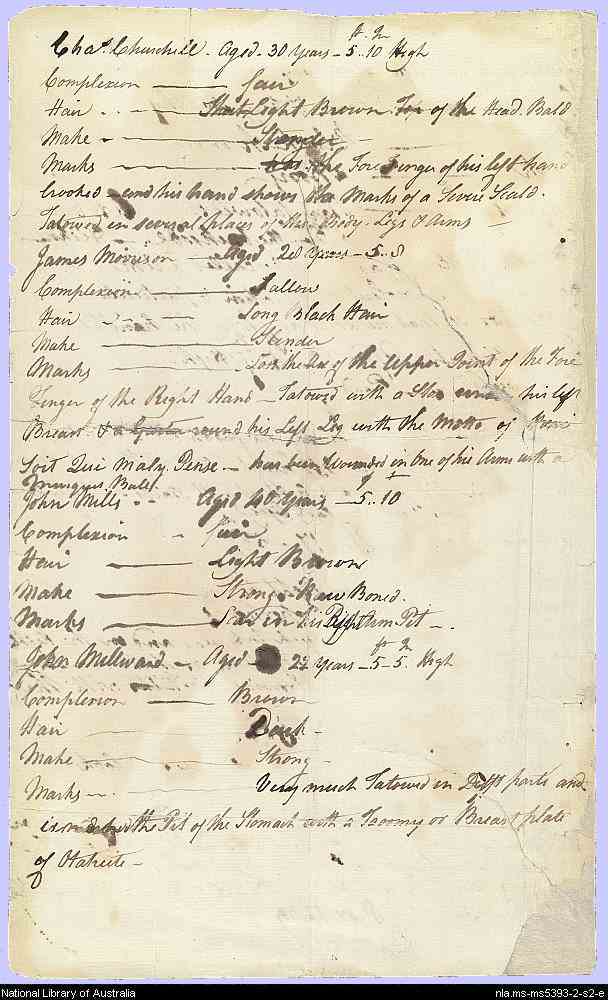 Chas. Churchill. Aged. 30 Years - 5..10 High
ft. In
Complexion —— fair
Hair . . — Short Light Brown Top of the Head Bald
Make - —— Slender —
Marks —— the Fore finger of his left hand
Crooked - and his hand shows the Marks of a Severe Scald.
Tatowed in several places of the Body. Legs & Arms —
James Morrison — Aged 28 Years — 5..8
Complexion —— Sallow
Hair - - — Long black Hair
Make —— Slender
Marks —— Lost the Use of the Upper Joint of the Fore
Finger of the Right Hand - Tatowed with a Star his left
Breast & a Garter round his Left Leg with the Motto of Honi
Soit Qui Maly Pense. - has been Wounded in One of his Arms with a
Musquet Ball
John Mills - - Aged 40 Years — 5..10
Complexion - fair
Hair —— Light Brown
Make —— Strong - Raw Boned.
Marks —— Scar in his Right Arm Pit -
John Millward - Aged 22 Years - 5-5. High
ft In
Complexion —— Brown
Hair — Dark -
Make —— Strong -
Marks - . Very much Tatowed in Difft parts and
the Pit of the Stomach with a Taoomy or Breast plate
of Otaheite -
National Library of Australia
nla.ms-ms5393-2-s2-e